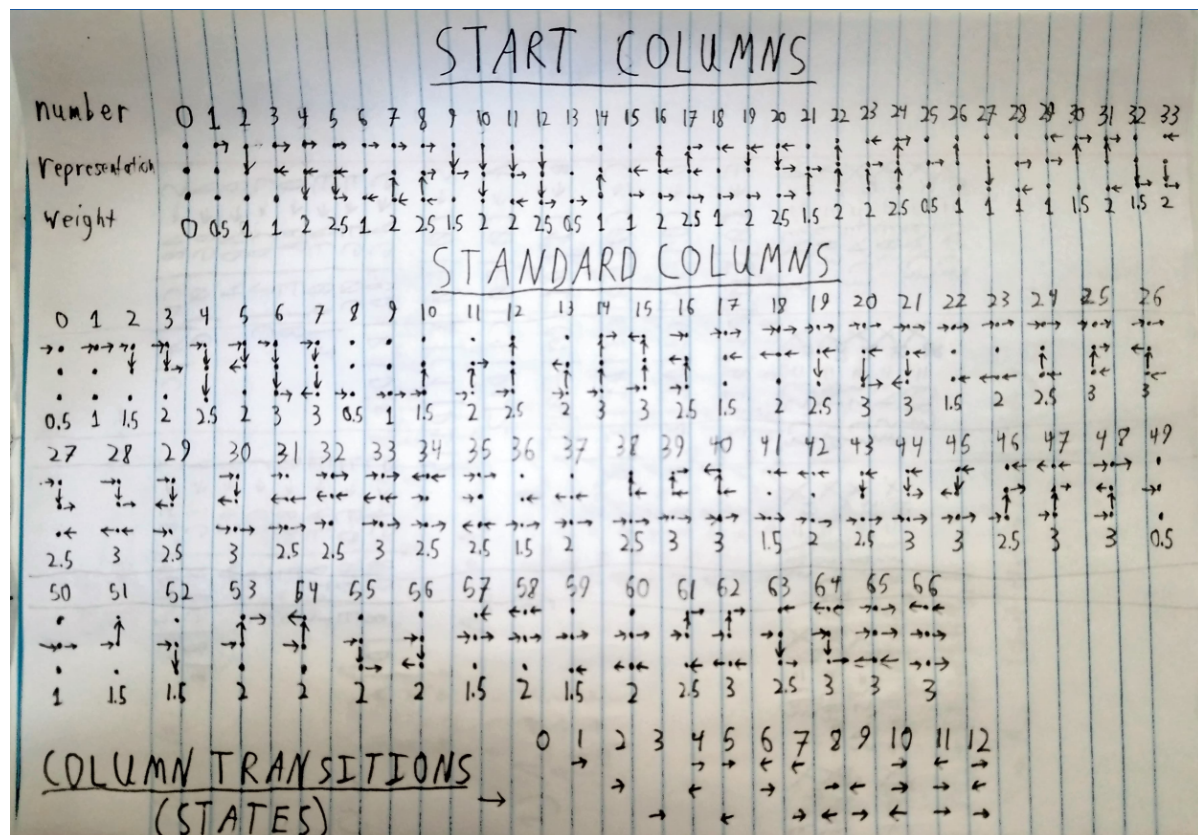 START COLUMNS
number 0 1 2 3 4 5 6 7 8 9 10 11 12 13 14 15 16 17 18 19 20 21 22 23 24 25 26 27 28 29 30 31 32 33
representation
weight 0 0.5 1 1 2 2.5 1 2 2.5 1.5 2 2 2.5 0.5 1 1 2 2.5 1 2 2.5 1.5 2 2 2.5 0.5 1 1 1 1 1.5 2 1.5 2
STANDARD COLUMNS
0 1 2 3 4 5 6 7 8 9 10 11 12 13 14 15 16 17 18 19 20 21 22 23 24 25 26
0.5 1 1.5 2 2.5 2 3 3 0.5 1 1.5 2 2.5 2 3 3 2.5 1.5 2 2.5 3 3 1.5 2 2.5 3 3
27 28 29 30 31 32 33 34 35 36 37 38 39 40 41 42 43 44 45 46 47 48 49
2.5 3 2.5 3 2.5 2.5 3 2.5 2.5 1.5 2 2.5 3 3 1.5 2 2.5 3 3 2.5 3 3 0.5
50 51 52 53 54 55 56 57 58 59 60 61 62 63 64 65 66
1 1.5 1.5 2 2 2 2 1.5 2 1.5 2 2.5 3 2.5 3 3 3
0 1 2 3 4 5 6 7 8 9 10 11 12
COLUMN TRANSITIONS →
(STATES)